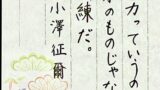 力っていうの
のものじゃな
練だ。
小澤征爾